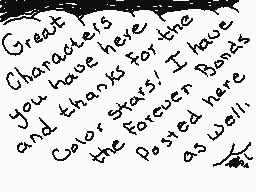 Great
Characters
you have here
and thanks for the
Color stars! I have
the Forever Bonds
Posted here
as well.